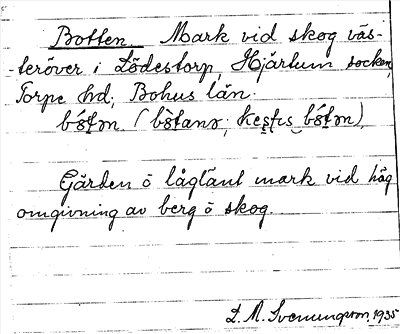 Botten. Mark vid skog väs-
-teröver i Lödestorp, Hjärtum socken,
Torpe hd; Bohus län.
Gärden ö låglänt mark vid hög
omgivning av berg ö skog.
L. M. Svenungsson, 1935